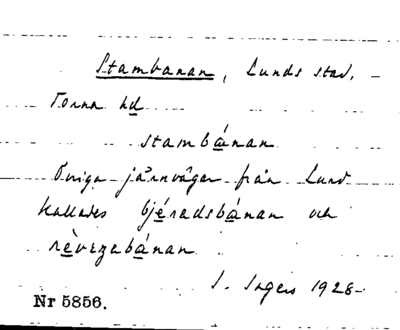 Stambanan, Lunds stad. –
Torna hd
stambánan
Övriga järnvägar från Lund
kallades bjéradsbánan och
rèvızabánan
I. Ingers 1928
Nr 5856.